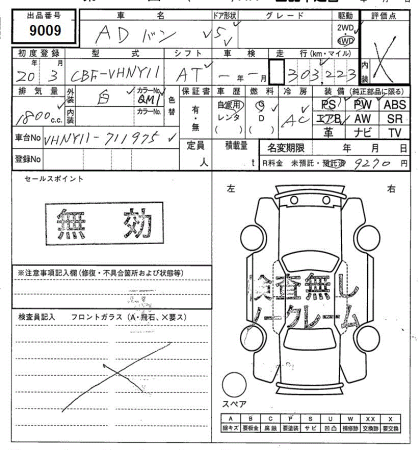 出品番号 車名 ドア形状 グレード 駆動 評価点
9009 ADバン 5 2WD 4WD
初度登録 型式 シフト 車検 走行(km・マイル) 内装
20年3月 CBF-VHNY11 AT -年-月 303,223
排気量 外装 色 カラーNo. 色替 保証書 車歴 燃料 冷房 装備(純正部品に限る)
1800c.c. 白 QM1 有・無 自家用 レンタ G D AC PS PW ABS
内装 カラーNo. エアB AW SR
革 ナビ TV
車台No VHNY11-711975 定員 人 積載量 t 名変期限 年 月 日
登録No R料金 未預託・預託済 9270円
セールスポイント
無効
左 右
※注意事項記入欄(修復・不具合箇所および状態等)
検査無し
ノークレーム
検査員記入 フロントガラス(A・飛石、×要ス)
スペア
A B C P S U W XX X
線キズ 要板金 腐蝕 要塗装 サビ 凹凸 補修跡 交換跡 要交換